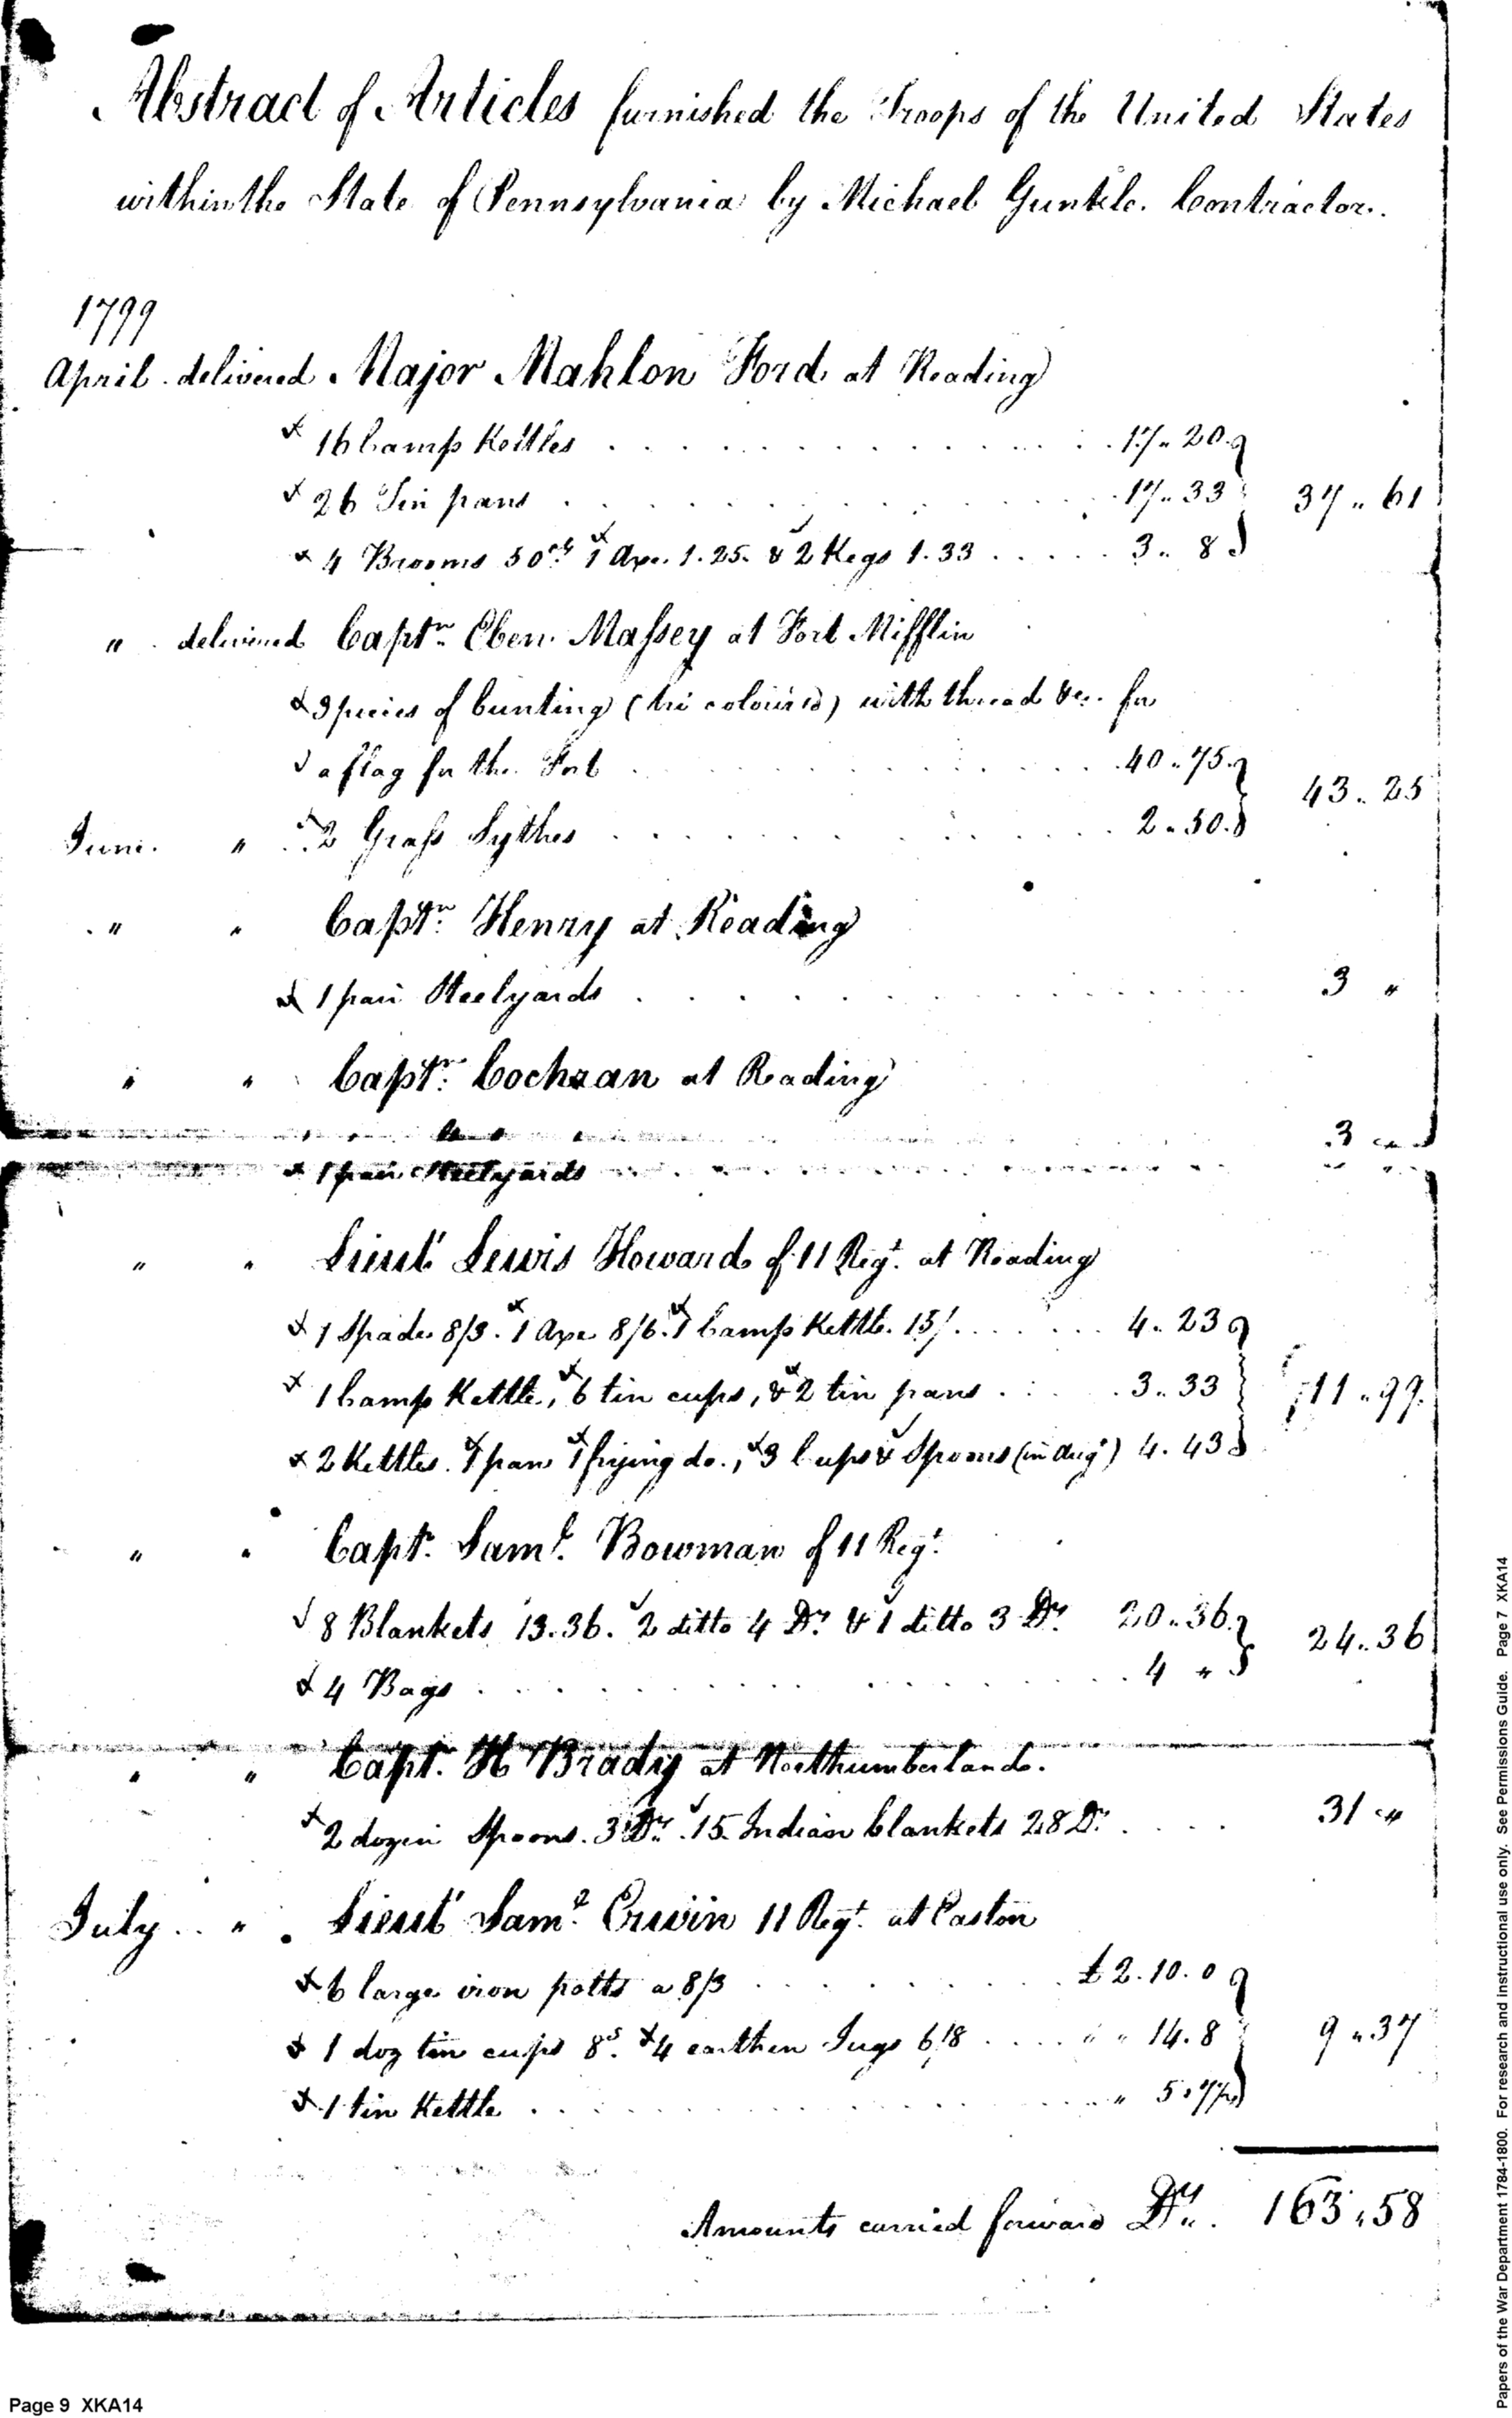 Abstract of Articles furnished the Troops of the United States
within the State of Pennsylvania by Michael Gunkle. Contractor.
1799
April. delivered Major Mahlon Ford at Reading
16 Camp Kettles . . . . 17.. 20
26 Tin pans . . . . 17.. 33 37.. 61
4 Brooms 50cts 1 Axe. 1.25. & 2 Kegs 1.33 . . . . 3.. 8
" delivered Captn. Eben. Massey at Fort Mifflin
3 pieces of bunting (tri coloured) with thread &c. for
a flag for the Fort . . . . 40.. 75 43.. 25
June. " 2 Grass Sythes . . . . 2.. 50
" " Captn. Henry at Reading
1 pair Steelyards . . . . 3 "
" " Captn. Cochran at Reading
3 "
1 pair Steelyards . . . .
" " Lieut Lewis Howard of 11 Regt. at Reading
1 Spade 8/3. 1 Axe 8/6. 1 Camp Kettle. 15/. . . . 4.. 23
1 Camp Kettle, 6 tin cups, & 2 tin pans . . . . 3.. 33 11.. 99
2 Kettles. 1 pan 1 frying do., 3 Cups & Spoons (in Augt) 4. 43
" " Capt. Saml. Bowman of 11 Regt.
8 Blankets 13.36. 2 ditto 4 Drs & 1 ditto 3 Drs. 20.. 36 24.. 36
4 Bags . . . . 4 "
" " Capt. H Brady at Northumberland.
2 dozen Spoons. 3 Drs. 15 Indian blankets 28 Drs . . . . 31 "
July. " Lieut Saml. Erwin 11 Regt. at Easton
6 large iron potts a 8/3 . . . . £ 2.10.0
1 doz tin cups 8s. 4 earthen Jugs 6/8 . . . . " " 14.8 9.. 37
1 tin Kettle . . . . " 5.7½
Amounts carried forward Drs. 163.. 58
Page 9 XKA14
Papers of the War Department 1784-1800. For research and instructional use only. See Permissions Guide. Page 7 XKA14